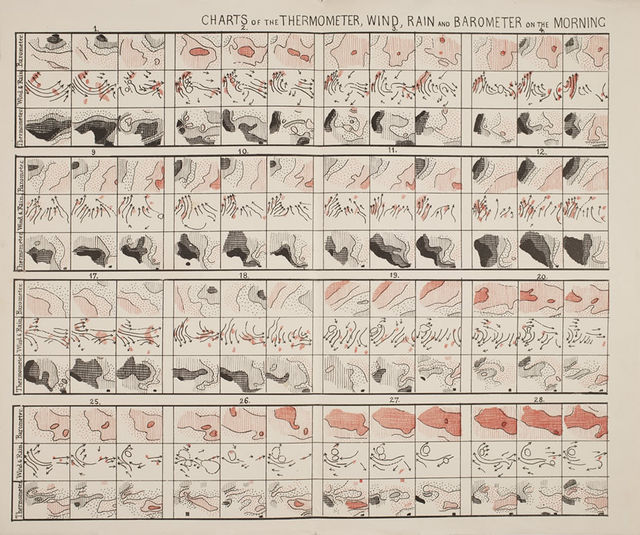 CHARTS OF THE THERMOMETER, WIND, RAIN AND BAROMETER ON THE MORNING
1. 2. 3. 4.
Barometer
Wind & Rain
Thermometer
9 10. 11. 12.
Barometer
Wind & Rain
Thermometer
17. 18. 19. 20.
Barometer
Wind & Rain
Thermometer
25. 26. 27. 28.
Barometer
Wind & Rain
Thermometer